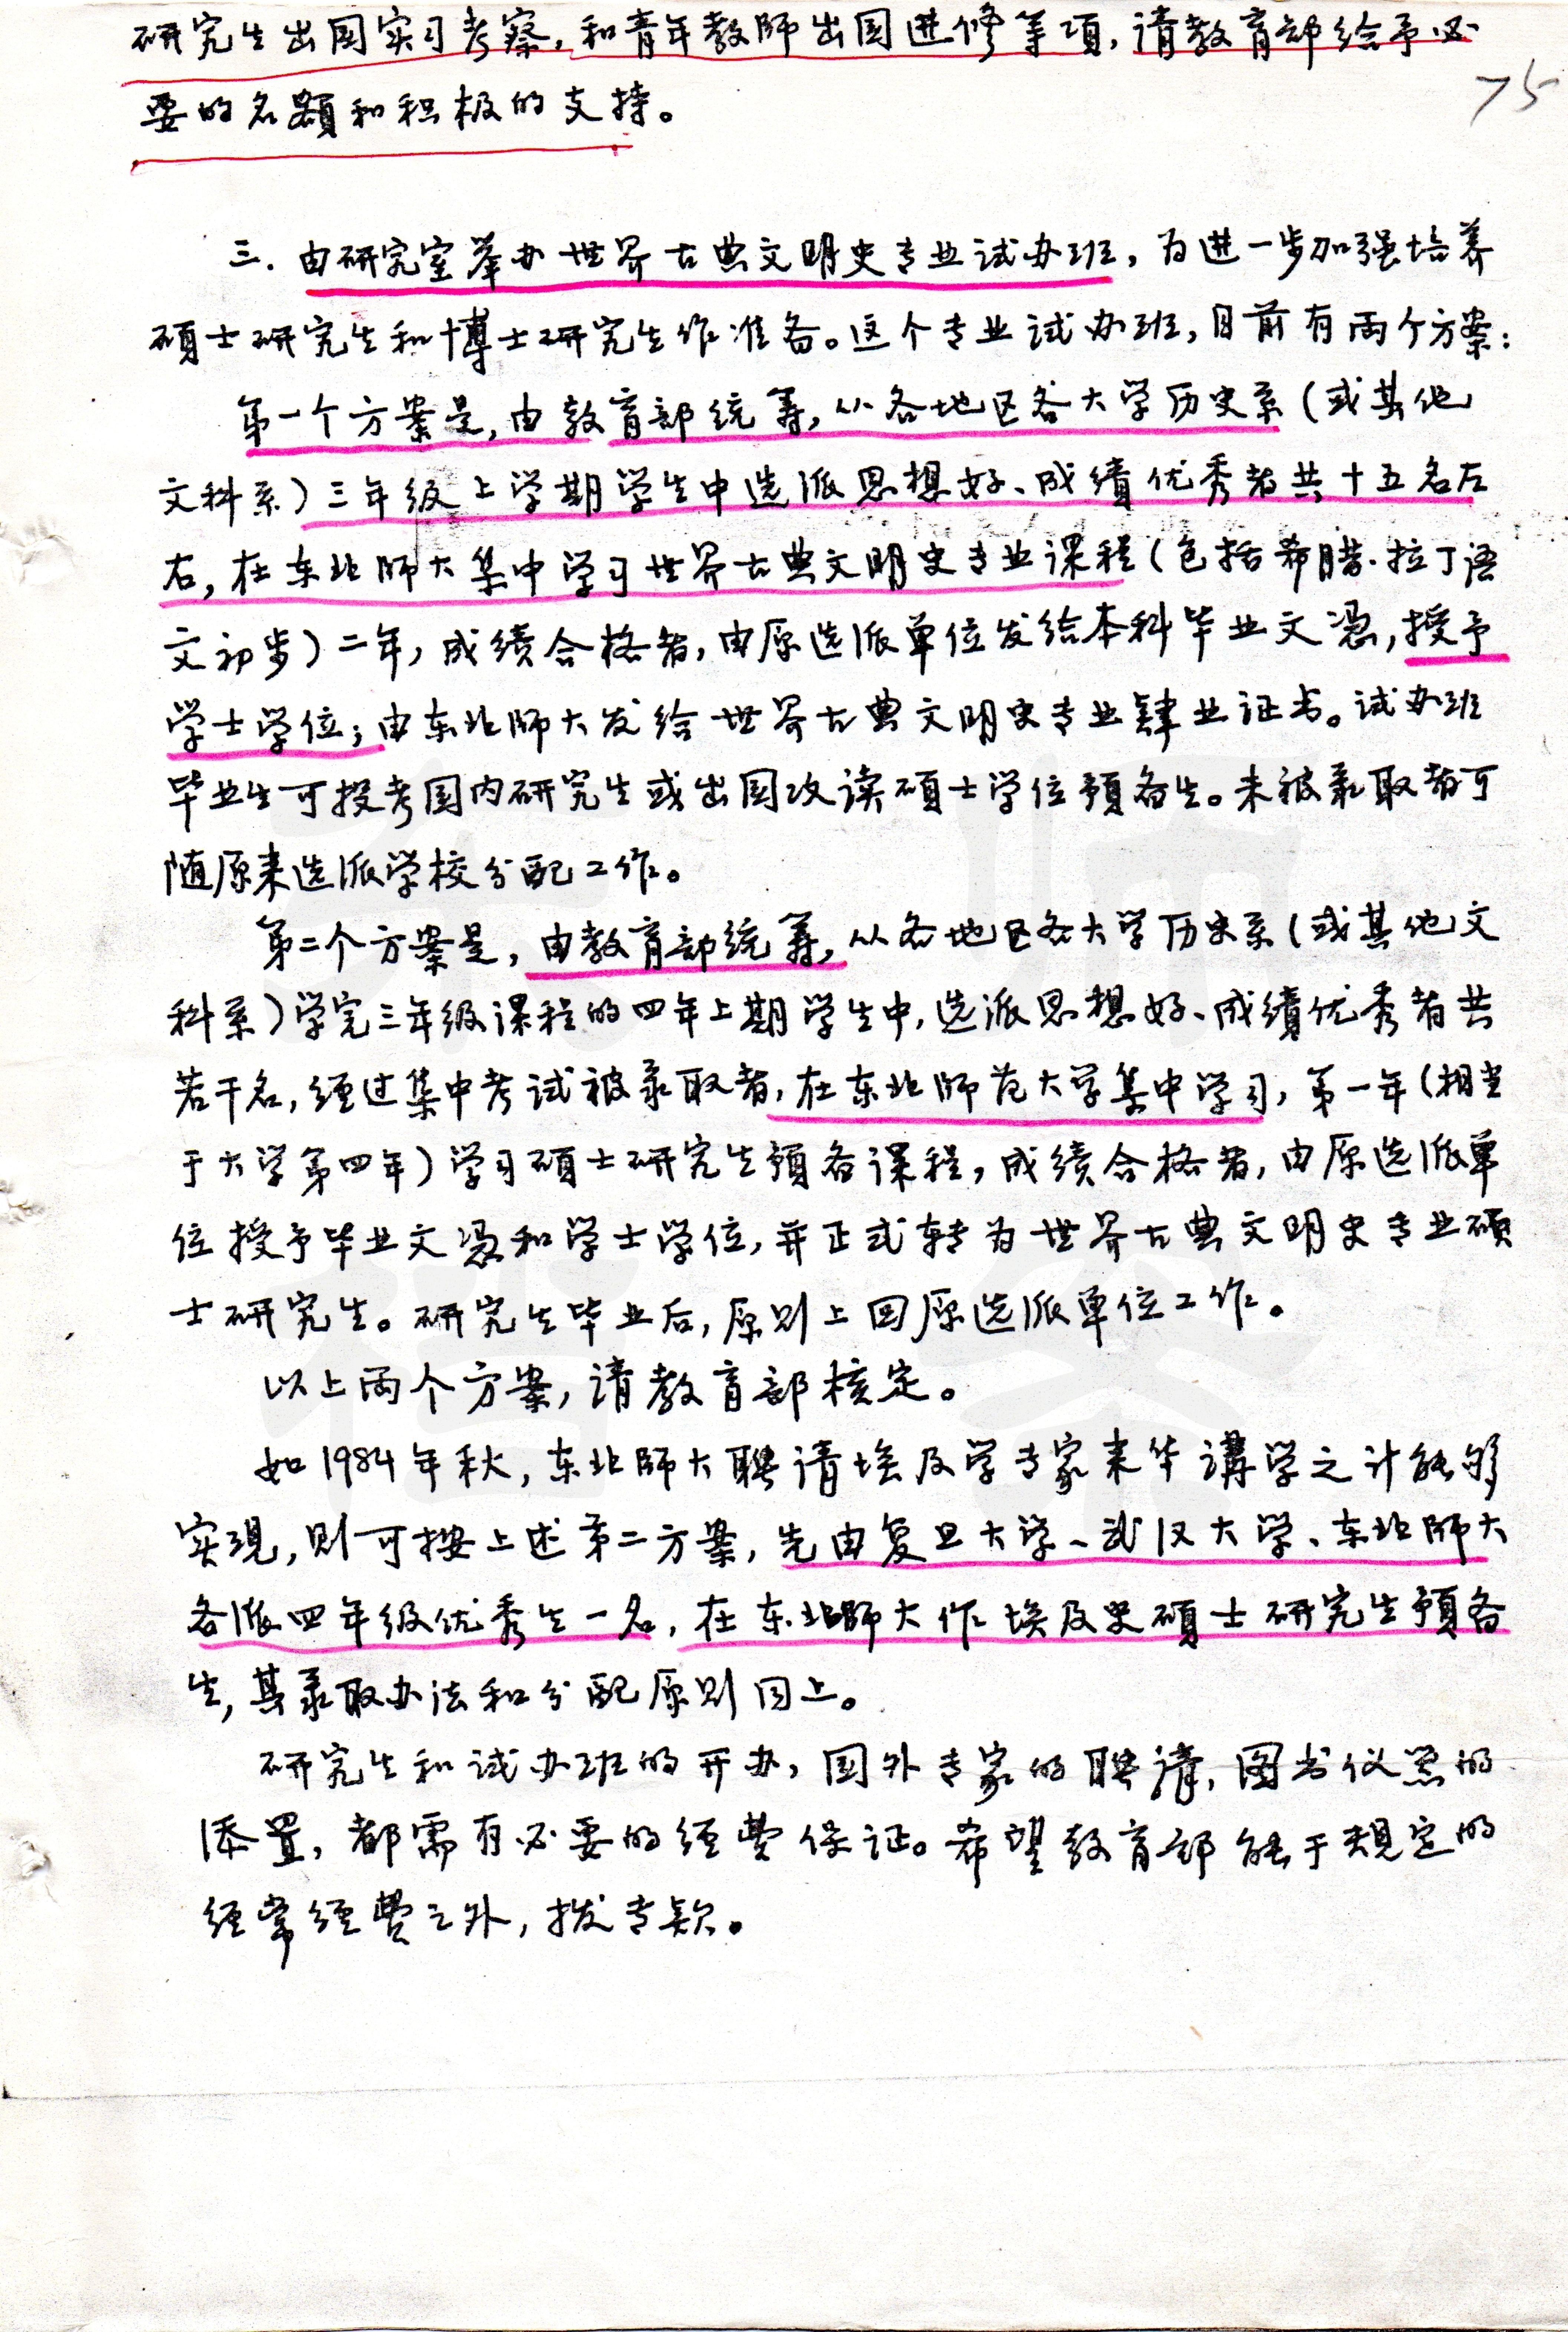 研究生出国实习考察，和青年教师出国进修等项，请教育部给予必
75
要的名额和积极的支持。
三．由研究室举办世界古典文明史专业试办班，为进一步加强培养
硕士研究生和博士研究生作准备。这个专业试办班，目前有两个方案：
第一个方案是，由教育部统筹，从各地区各大学历史系（或其他
文科系）三年级上学期学生中选派思想好、成绩优秀者共十五名左
右，在东北师大集中学习世界古典文明史专业课程（包括希腊·拉丁语
文初步）二年，成绩合格者，由原选派单位发给本科毕业文凭，授予
学士学位；由东北师大发给世界古典文明史专业肄业证书。试办班
毕业生可投考国内研究生或出国攻读硕士学位预备生。未被录取者可
随原来选派学校分配工作。
第二个方案是，由教育部统筹，从各地区各大学历史系（或其他文
科系）学完三年级课程的四年上期学生中，选派思想好、成绩优秀者共
若干名，经过集中考试被录取者，在东北师范大学集中学习，第一年（相当
于大学第四年）学习硕士研究生预备课程，成绩合格者，由原选派单
位授予毕业文凭和学士学位，并正式转为世界古典文明史专业硕
士研究生。研究生毕业后，原则上回原选派单位工作。
以上两个方案，请教育部核定。
如1984年秋，东北师大聘请埃及学专家来华讲学之计能够
实现，则可按上述第二方案，先由复旦大学、武汉大学、东北师大
各派四年级优秀生一名，在东北师大作埃及史硕士研究生预备
生，其录取办法和分配原则同上。
研究生和试办班的开办，国外专家的聘请，图书仪器的
添置，都需有必要的经费保证。希望教育部能于规定的
经常经费之外，拨专款。